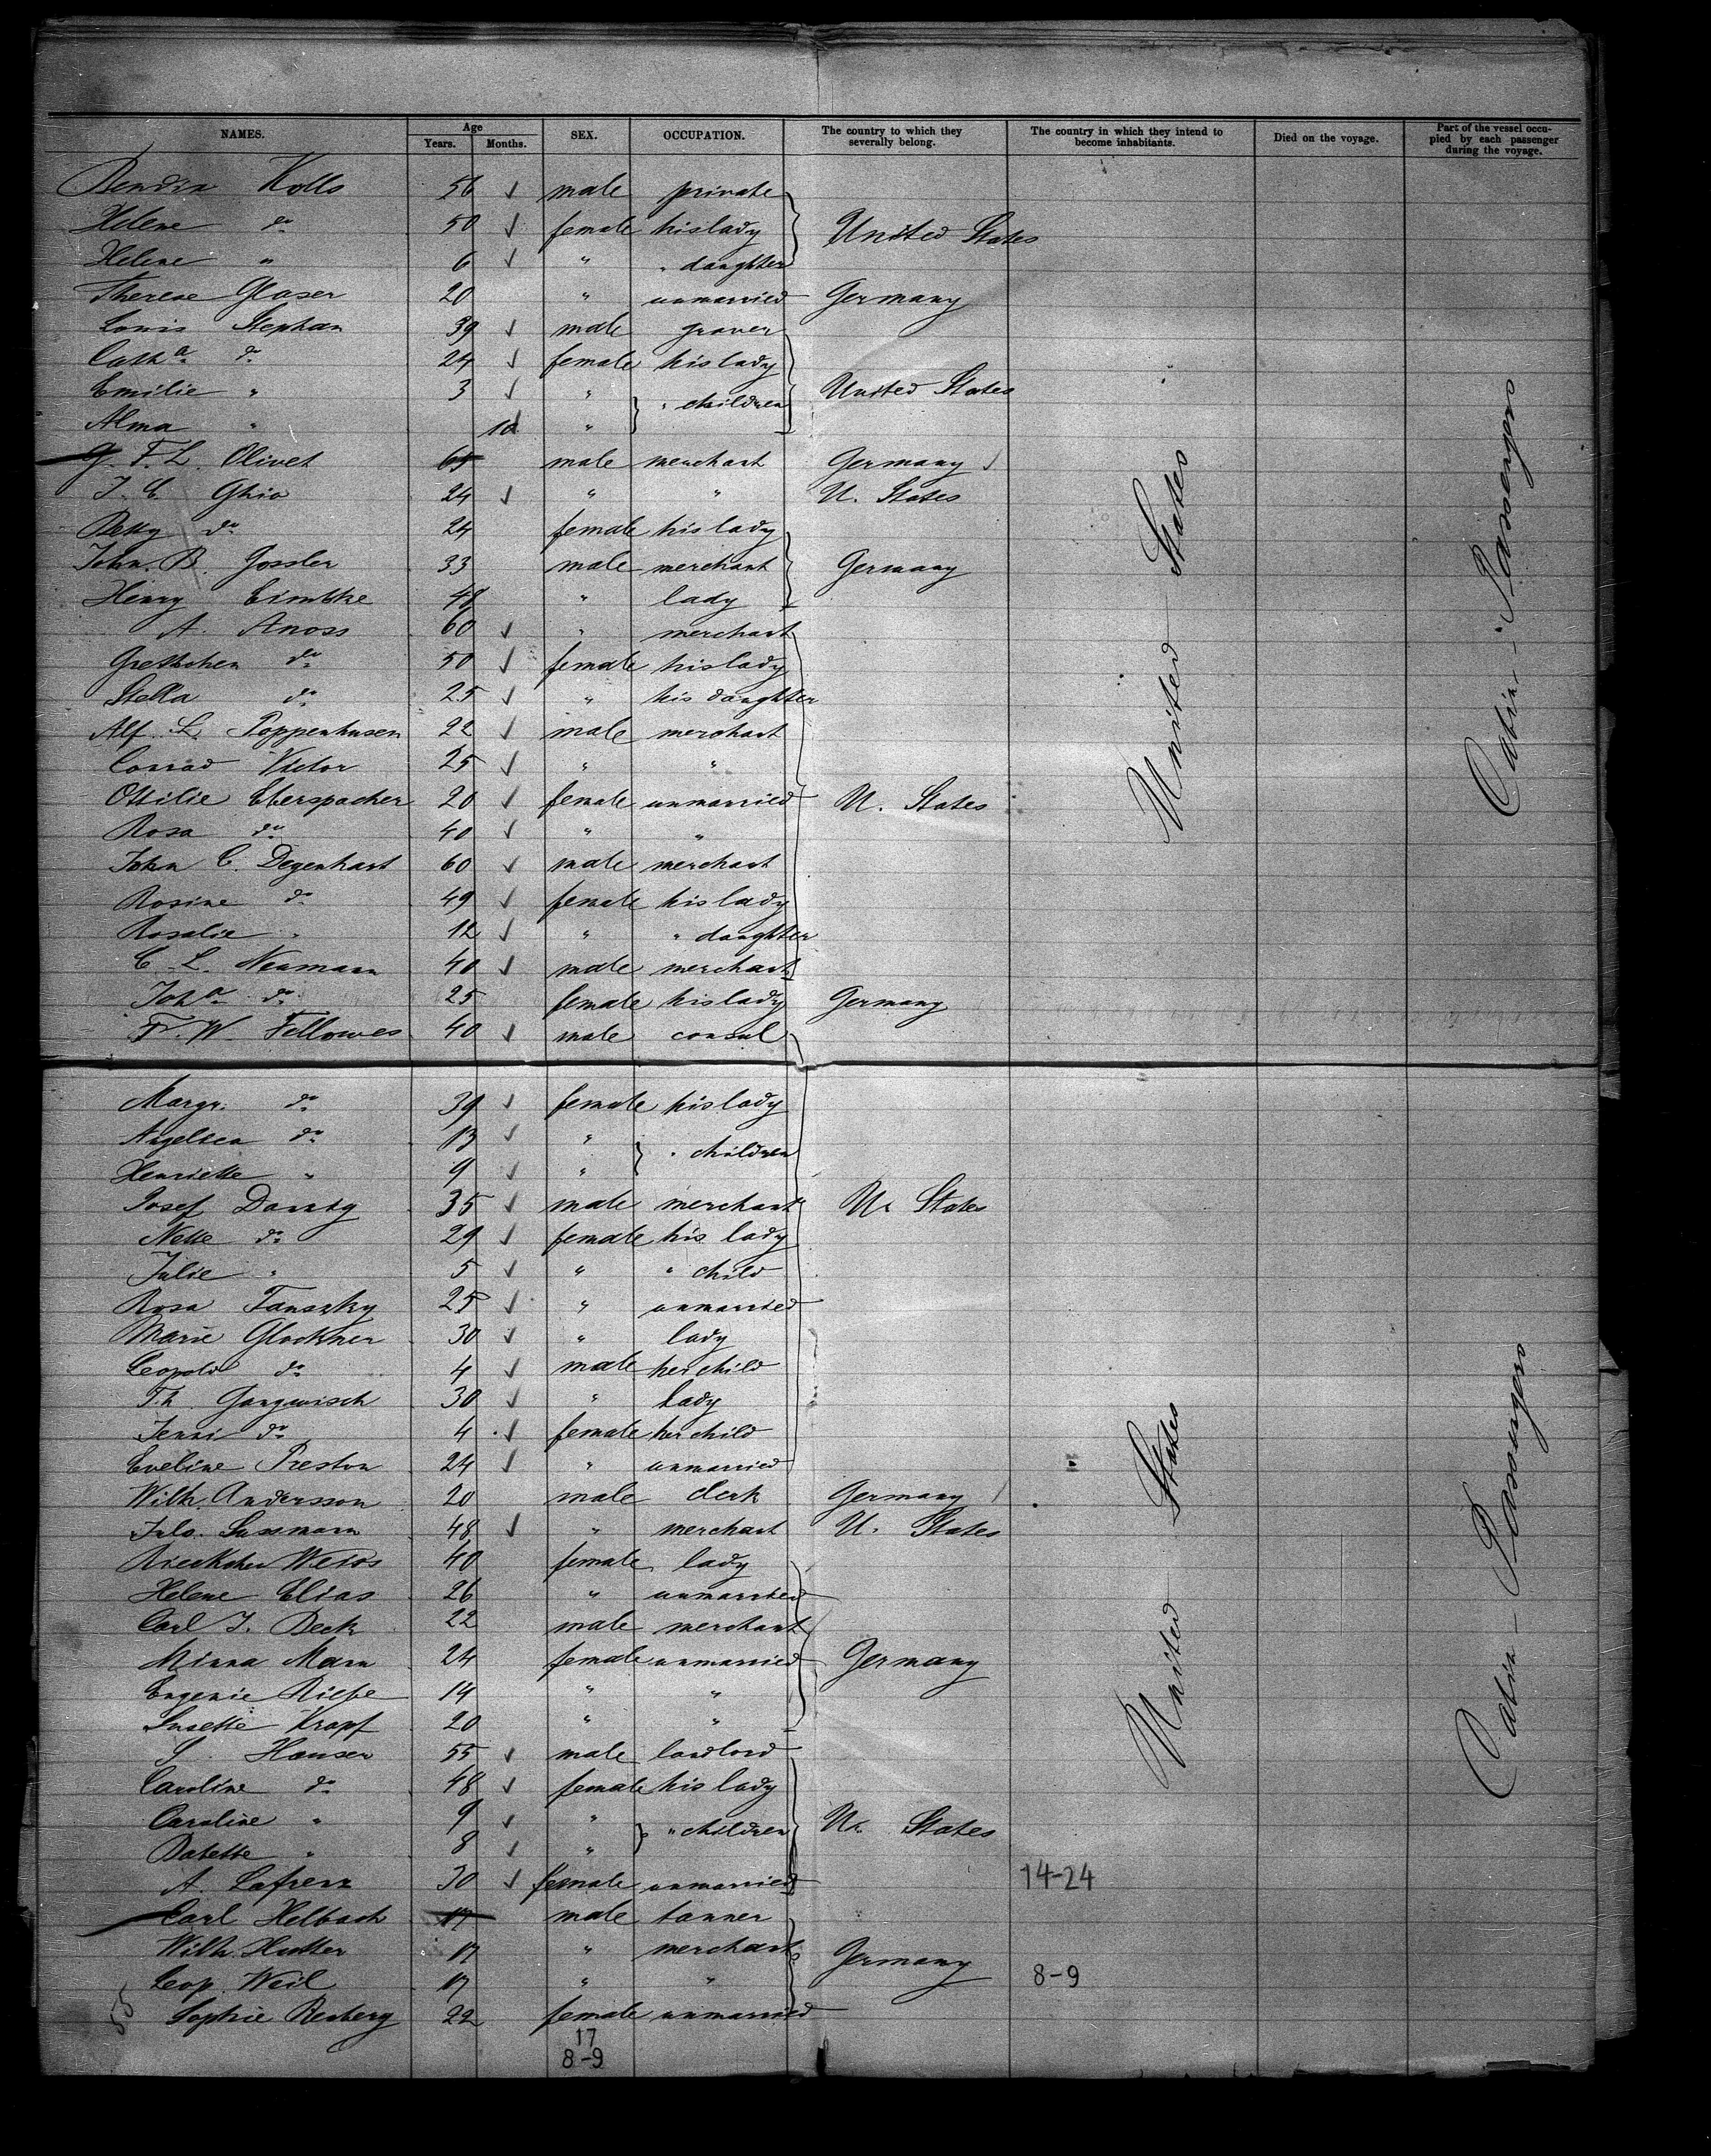 NAMES. Age Years. Months. SEX. OCCUPATION. The country to which they severally belong. The country in which they intend to become inhabitants. Died on the voyage. Part of the vessel occupied by each passenger during the voyage.
Kolls 56 ✓ male private
Helene do 50 ✓ female his lady United States
Helene " 6 ✓ " " daughter
Therese Glaser 20 " unmarried Germany
Louis Stephan 39 ✓ male graver
Catha do 24 ✓ female his lady
Emilie " 3 ✓ " " children United States
Alma " 10 "
G. F. L. Olivet 65 male merchant Germany ✓
J. C. Ghio 24 ✓ " " U. States
Betty do 24 female his lady
John. B. Gossler 33 male merchant Germany
Henry Eimbke 48 " lady
A. Anoss 60 ✓ " merchant
Grethchen do 50 ✓ female his lady
Stella do 25 ✓ " his daughter
Alf. L. Poppenhusen 22 ✓ male merchant
Conrad Vietor 25 ✓ " "
Ottilie Eberspacher 20 ✓ female unmarried U. States
Rosa do 40 ✓ " "
John C. Degenhart 60 ✓ male merchant
Rosine do 49 ✓ female his lady
Rosalie " 12 ✓ " " daughter
C. L. Neumann 40 ✓ male merchant
Joha do 25 female his lady Germany
F. W. Fellowes 40 ✓ male consul
United States
Cabin-Passengers
Margr. do 39 ✓ female his lady
do 13 ✓ " " children
Henriette " 9 ✓ "
Josef 35 ✓ male merchant U. States
Nette do 29 ✓ female his lady
Julie " 5 ✓ " " child
Rosa Tanszky 25 ✓ " unmarried
Marie Glockner 30 ✓ " lady
Leopold do 4 ✓ male her child
Th. Gangwisch 30 ✓ " lady
Jenni do 4 ✓ female her child
Eveline Preston 24 ✓ " unmarried
Wilh. Andersson 20 male clerk Germany
Juls. Sussmann 48 ✓ " merchant U. States
Rieckchen Weiss 40 female lady
Helene Elias 26 " unmarried
Carl J. Beck 22 male merchant
Minna Mann 24 female unmarried Germany
Eugenie Riefe 14 " "
Susette Kropf 20 " "
S. Hansen 55 ✓ male landlord
Caroline do 48 ✓ female his lady
Caroline " 9 ✓ " " children U. States
Babette " 8 ✓ "
A. Lafrenz 30 ✓ female unmarried 14-24
Carl Helbach 17 male tanner
Wilh. Hutter 17 " merchant Germany
Leop. Weil 17 " " 8-9
55 Sophie 22 female unmarried
17
8-9
United States
Cabin-Passengers